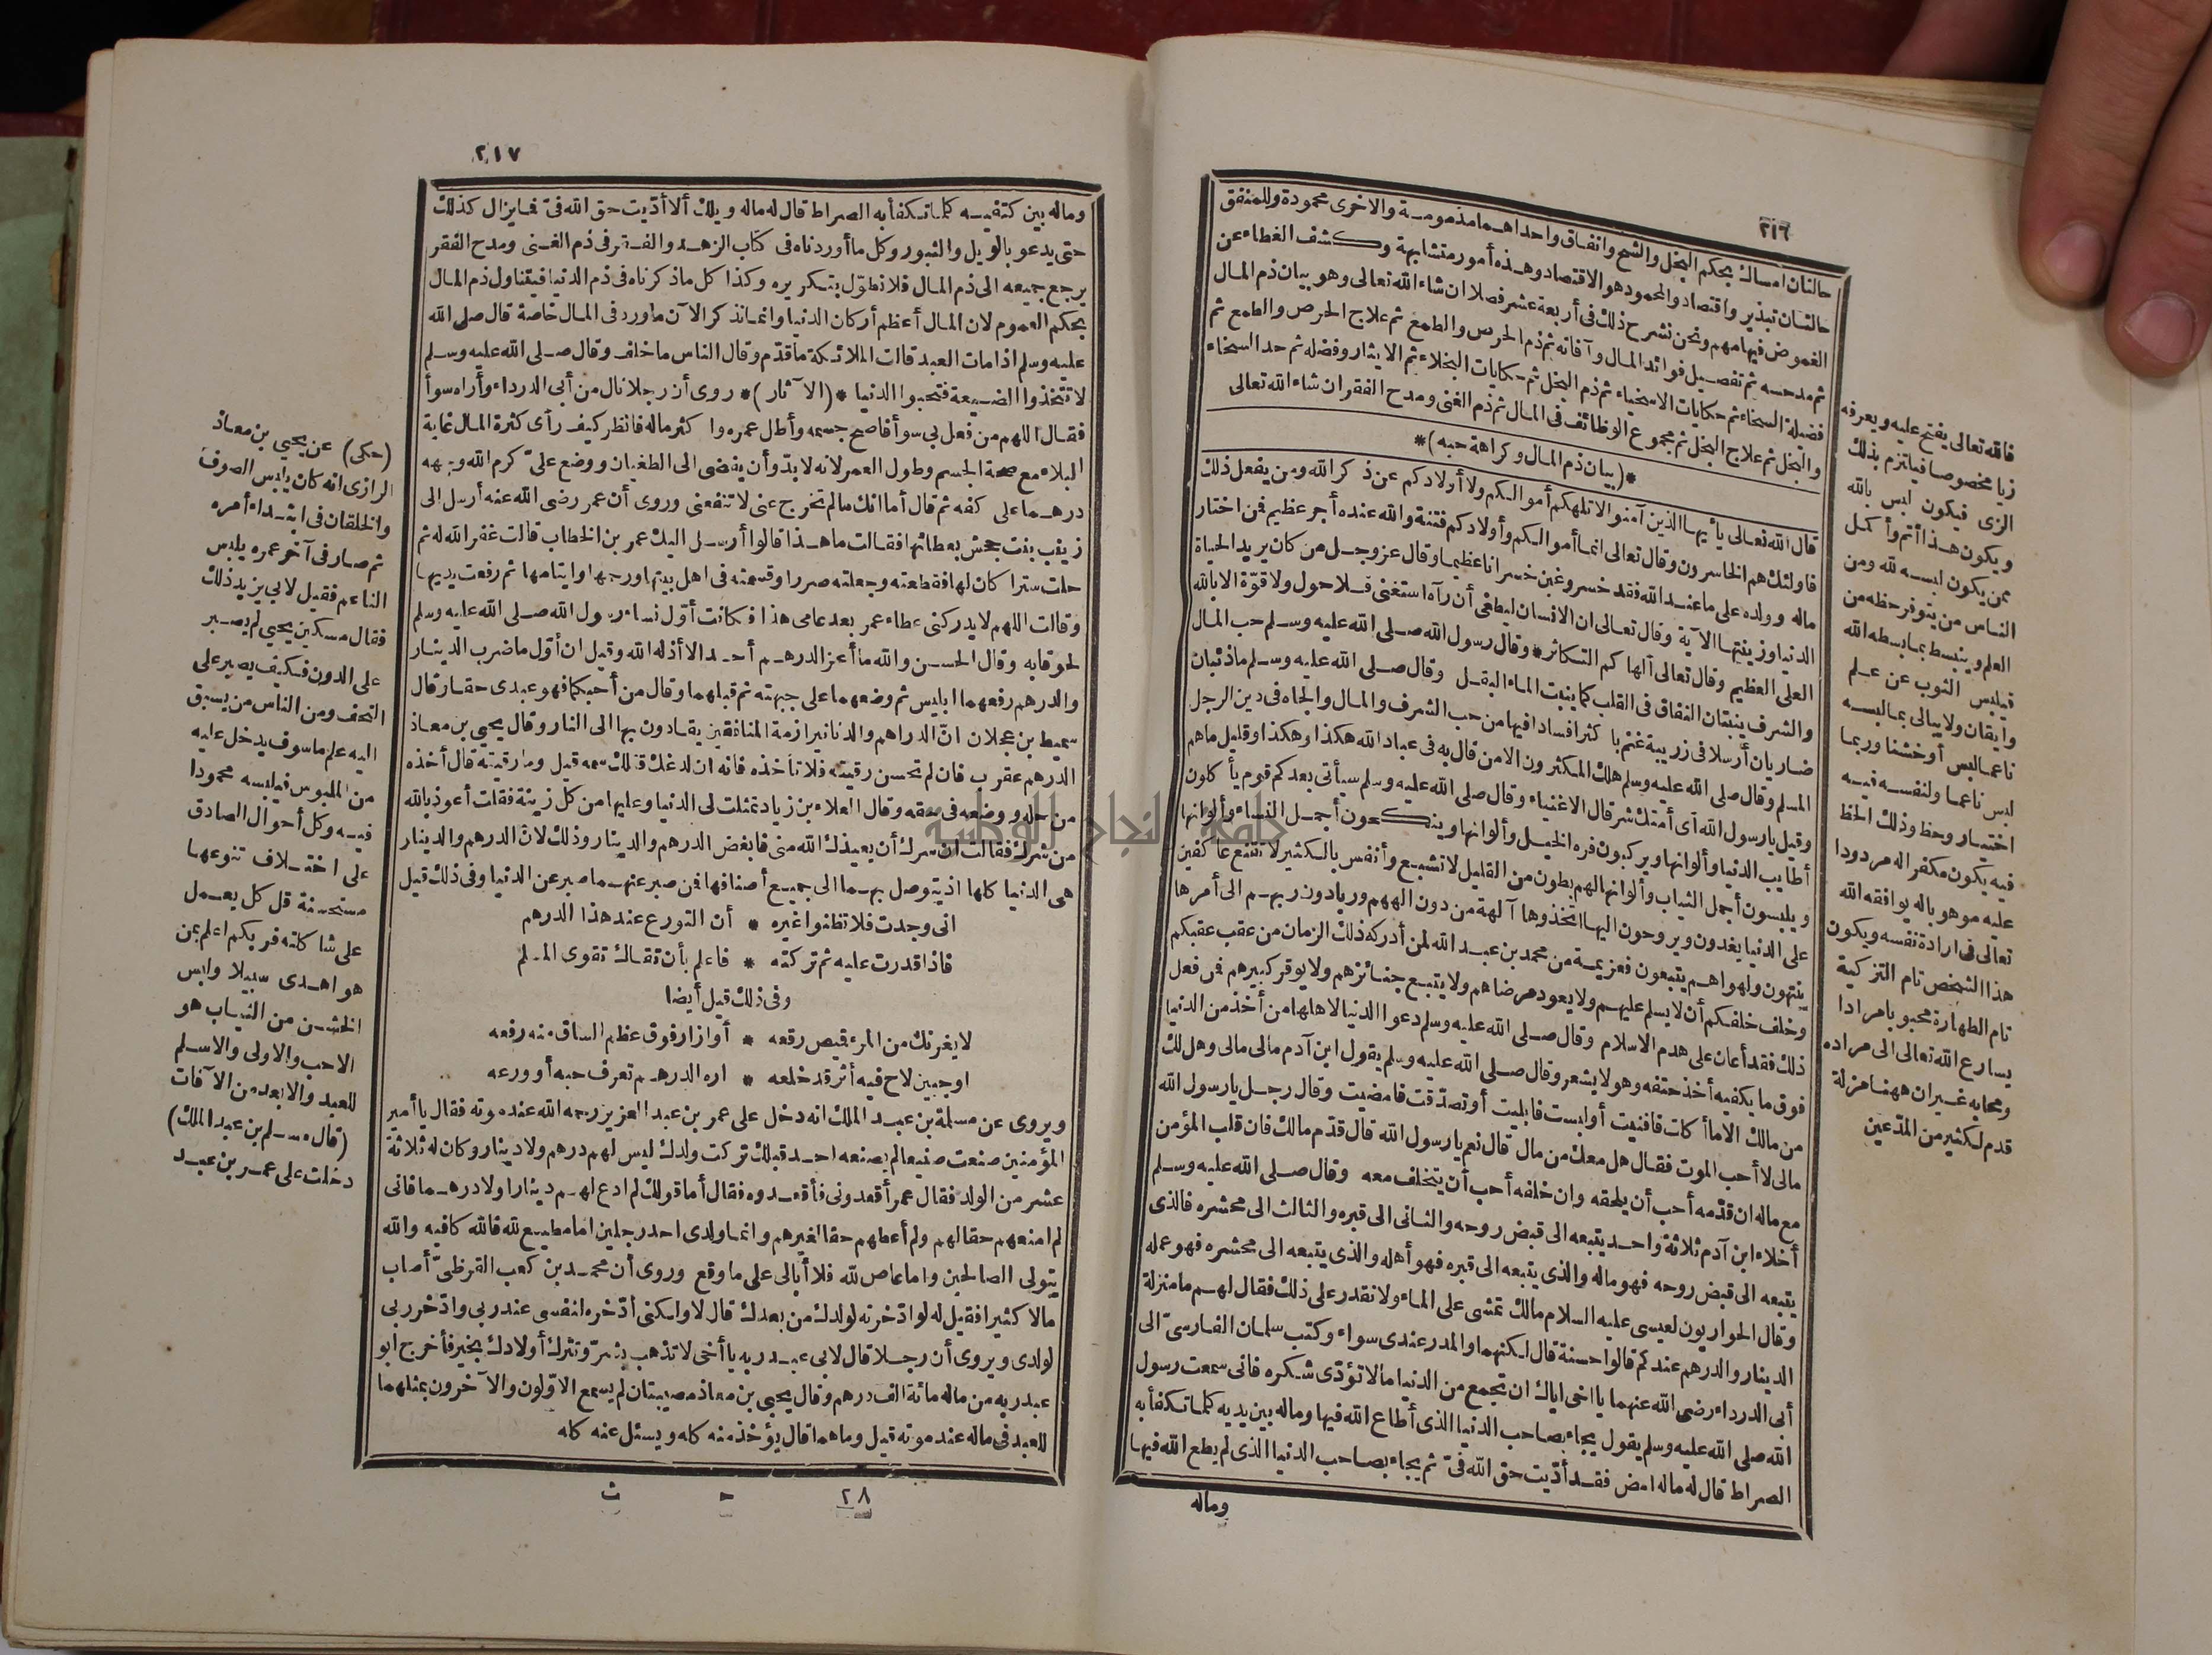 ٢١٦
حالتان امساك بحكم البخل والشح وانفاق واحداهما مذمومة والاخرى محمودة وللمنفق
حالتان تبذير واقتصاد والمحمود هو الاقتصاد وهذه أمور متشابهة وكشف الغطاء عن
الغموض فيها مهم ونحن نشرح ذلك فى أربعة عشر فصلا ان شاء الله تعالى وهو بيان ذم المال
ثم مدحه ثم تفصيل فوائد المال وآفاته ثم ذم الحرص والطمع ثم علاج الحرص والطمع ثم
فضيلة السخاء ثم حكايات الاسخياء ثم ذم البخل ثم حكايات البخلاء ثم الايثار وفضله ثم حد السخاء
والبخل ثم علاج البخل ثم مجموع الوظائف فى المال ثم ذم الغنى ومدح الفقر ان شاء الله تعالى
*(بيان ذم المال وكراهة حبه)*
قال الله تعالى يأيها الذين آمنوا لا تلهكم أموالكم ولا أولادكم عن ذكر الله ومن يفعل ذلك
فاولئك هم الخاسرون وقال تعالى انما أموالكم وأولادكم فتنة والله عنده أجر عظيم فمن اختار
ماله وولده على ما عند الله فقد خسر وغبن خسرانا عظيما وقال عز وجل من كان يريد الحياة
الدنيا وزينتها الآية وقال تعالى ان الانسان ليطغى أن رآه استغنى فلا حول ولا قوّة الا بالله
العلى العظيم وقال تعالى ألهاكم التكاثر* وقال رسول الله صلى الله عليه وسلم حب المال
والشرف ينبتان النفاق فى القلب كما ينبت الماء البقل وقال صلى الله عليه وسلم ما ذئبان
ضاريان أرسلا فى زريبة غنم با كثر افسادا فيها من حب الشرف والمال والجاه فى دين الرجل
المسلم وقال صلى الله عليه وسلم هلك المكثرون الا من قال به فى عباد الله هكذا وهكذا وقليل ما هم
وقيل يا رسول الله أى أمتك شر قال الاغنياء وقال صلى الله عليه وسلم سيأتى بعدكم قوم يأكلون
أطايب الدنيا وألوانها ويركبون فره الخيل وألوانها وينكحون أجمل النساء وألوانها
ويلبسون أجمل الثياب وألوانها لهم بطون من القليل لا تشبع وأنفس بالكثير لا تقنع عاكفين
على الدنيا يغدون ويروحون اليها اتخذوها آلهة من دون الههم وربا دون ربهم الى أمرها
ينتهون ولهواهم يتبعون فعزيمة من محمد بن عبد الله لمن أدركه ذلك الزمان من عقب عقبكم
وخلف خلفكم أن لا يسلم عليهم ولا يعود مرضاهم ولا يتبع جنائزهم ولا يوقر كبيرهم فمن فعل
ذلك فقد أعان على هدم الاسلام وقال صلى الله عليه وسلم دعوا الدنيا لاهلها من أخذ من الدنيا
فوق ما يكفيه أخذ حتفه وهو لا يشعر وقال صلى الله عليه وسلم يقول ابن آدم مالى مالى وهل لك
من مالك الا ما أكلت فافنيت أو لبست فابليت أو تصدّقت فامضيت وقال رجل يا رسول الله
مالى لا أحب الموت فقال هل معك من مال قال نعم يا رسول الله قال قدّم مالك فان قلب المؤمن
مع ماله ان قدّمه أحب أن يلحقه وان خلفه أحب أن يتخلف معه وقال صلى الله عليه وسلم
أخلاء ابن آدم ثلاثة واحد يتبعه الى قبض روحه والثانى الى قبره والثالث الى محشره فالذى
يتبعه الى قبض روحه فهو ماله والذى يتبعه الى قبره فهو أهله والذى يتبعه الى محشره فهو عمله
وقال الحواريون لعيسى عليه السلام مالك تمشى على الماء ولا نقدر على ذلك فقال لهم ما منزلة
الدينار والدرهم عندكم قالوا حسنة قال لكنهما والمدر عندى سواء وكتب سلمان الفارسىّ الى
أبى الدرداء رضى الله عنهما يا اخى اياك ان تجمع من الدنيا ما لا تؤدّى شكره فانى سمعت رسول
الله صلى الله عليه وسلم يقول يجاء بصاحب الدنيا الذى أطاع الله فيها وماله بين يديه كلما تكفأ به
الصراط قال له ماله امض فقد أدّيت حق الله فىّ ثم يجاء بصاحب الدنيا الذى لم يطع الله فيها
وماله
فالله تعالى يفتح عليه ويعرفه
زيا مخصوصا فيلتزم بذلك
الزى فيكون لبس بالله
ويكون هذا أتم وأكمل
ممن يكون لبسه لله ومن
الناس من يتوفر حظه من
العلم وينبسط بما بسطه الله
فيلبس الثوب عن علم
وايقان ولا يبالى بما لبسه
ناعما لبس أو خشنا وربما
لبس ناعما ولنفسه فيه
اختيار وحظ وذلك الحظ
فيه يكون مكفرا له مردودا
عليه موهوبا له يوافقه الله
تعالى فى ارادة نفسه ويكون
هذا الشخص تام التزكية
تام الطهارة محبوبا مرادا
يسارع الله تعالى الى مراده
ومحابه غير ان ههنا مزلة
قدم لكثير من المدّعين
٢١٧
وماله بين كتفيه كلما تكفأ به الصراط قال له ماله ويلك ألا أدّيت حق الله فىّ فما يزال كذلك
حتى يدعو بالويل والثبور وكل ما أوردناه فى كتاب الزهد والفقر فى ذم الغنى ومدح الفقر
يرجع جميعه الى ذم المال فلا نطوّل بتكريره وكذا كل ما ذكرناه فى ذم الدنيا فيتناول ذم المال
بحكم العموم لان المال أعظم أركان الدنيا وانما نذكر الآن ما ورد فى المال خاصة قال صلى الله
عليه وسلم اذا مات العبد قالت الملائكة ما قدّم وقال الناس ما خلف وقال صلى الله عليه وسلم
لا تتخذوا الضيعة فتحبوا الدنيا *(الآثار)* روى أن رجلا نال من أبى الدرداء وأراه سوأ
فقال اللهم من فعل بى سوأ فأصح جسمه وأطل عمره وا كثر ماله فانظر كيف رأى كثرة المال غاية
البلاء مع صحة الجسم وطول العمر لانه لا بدّ وأن يفضى الى الطغيان ووضع علىّ كرم الله وجهه
درهما على كفه ثم قال أما انك ما لم تخرج عنى لا تنفعنى وروى أن عمر رضى الله عنه أرسل الى
زينب بنت جحش بعطائها فقالت ما هذا قالوا أرسل اليك عمر بن الخطاب قالت غفر الله له ثم
حلت سترا كان لها فقطعته وجعلته صررا وقسمته فى اهل بيتها ورحمها وايتامها ثم رفعت يديها
وقالت اللهم لا يدركنى عطاء عمر بعد عامى هذا فكانت أوّل نساء رسول الله صلى الله عليه وسلم
لحوقا به وقال الحسن والله ما أعز الدرهم أحد الا أذله الله وقيل ان أوّل ما ضرب الدينار
والدرهم رفعهما ابليس ثم وضعهما على جبهته ثم قبلهما وقال من أحبكما فهو عبدى حقا وقال
سميط بن عجلان انّ الدراهم والدنانير ازمة المنافقين يقادون بها الى النار وقال يحيى بن معاذ
الدرهم عقرب فان لم تحسن رقيته فلا تأخذه فانه ان لدغك قتلك سمه قيل وما رقيته قال أخذه
من حله ووضعه فى حقه وقال العلاء بن زياد تمثلت لى الدنيا وعليها من كل زينة فقلت أعوذ بالله
من شرك فقالت ان سرك أن يعيذك الله منى فابغض الدرهم والدينار وذلك لان الدرهم والدينار
هى الدنيا كلها اذ يتوصل بهما الى جميع أصنافها فمن صبر عنهما صبر عن الدنيا وفى ذلك قيل
انى وجدت فلا تظنوا غيره * أن التورع عند هذا الدرهم
فاذا قدرت عليه ثم تركته * فاعلم بأن تقاك تقوى المسلم
وفى ذلك قيل أيضا
لا يغرنك من المرء قميص رقعه * أو ازار فوق عظم الساق منه رفعه
او جبين لاح فيه أثر قد خلعه * اره الدرهم تعرف حبه أو ورعه
ويروى عن مسلمة بن عبد الملك انه دخل على عمر بن عبد العزيز رحمه الله عند موته فقال يا أمير
المؤمنين صنعت صنيعا لم يصنعه احد قبلك تركت ولدك ليس لهم درهم ولا دينار وكان له ثلاثة
عشر من الولد فقال عمر أقعدونى فأقعدوه فقال أما قولك لم ادع لهم دينارا ولا درهما فانى
لم امنعهم حقا لهم ولم أعطهم حقا لغيرهم وانما ولدى احد رجلين اما مطيع لله فالله كافيه والله
يتولى الصالحين واما عاص لله فلا أبالى على ما وقع وروى أن محمد بن كعب القرظىّ أصاب
مالا كثيرا فقيل له لو ادّخرته لولدك من بعدك قال لا ولكنى أدّخره لنفسى عند ربى وادّخر ربى
لولدى ويروى أن رجلا قال لابى عبد ربه يا أخى لا تذهب بشرّ وتترك أولادك بخير فأخرج ابو
عبد ربه من ماله مائة الف درهم وقال يحيى بن معاذ مصيبتان لم يسمع الاوّلون والآخرون بمثلهما
للعبد فى ماله عند موته قيل وما هما قال يؤخذ منه كله ويسئل عنه كله
٢٨ ح ث
(حكى) عن يحيى بن معاذ
الرازى انه كان يلبس الصوف
والخلقان فى ابتداء أمره
ثم صار فى آخر عمره يلبس
الناعم فقيل لابى يزيد ذلك
فقال مسكين يحيى لم يصبر
على الدون فكيف يصبر على
التحف ومن الناس من يسبق
اليه علم ما سوف يدخل عليه
من الملبوس فيلبسه محمودا
فيه وكل أحوال الصادق
على اختلاف تنوعها
مستحسنة قل كل يعمل
على شاكلته فربكم اعلم بمن
هو اهدى سبيلا ولبس
الخشن من الثياب هو
الاحب والاولى والاسلم
للعبد والابعد من الآفات
(قال مسلم بن عبد الملك)
دخلت على عمر بن عبد
جامعة النجاح الوطنية